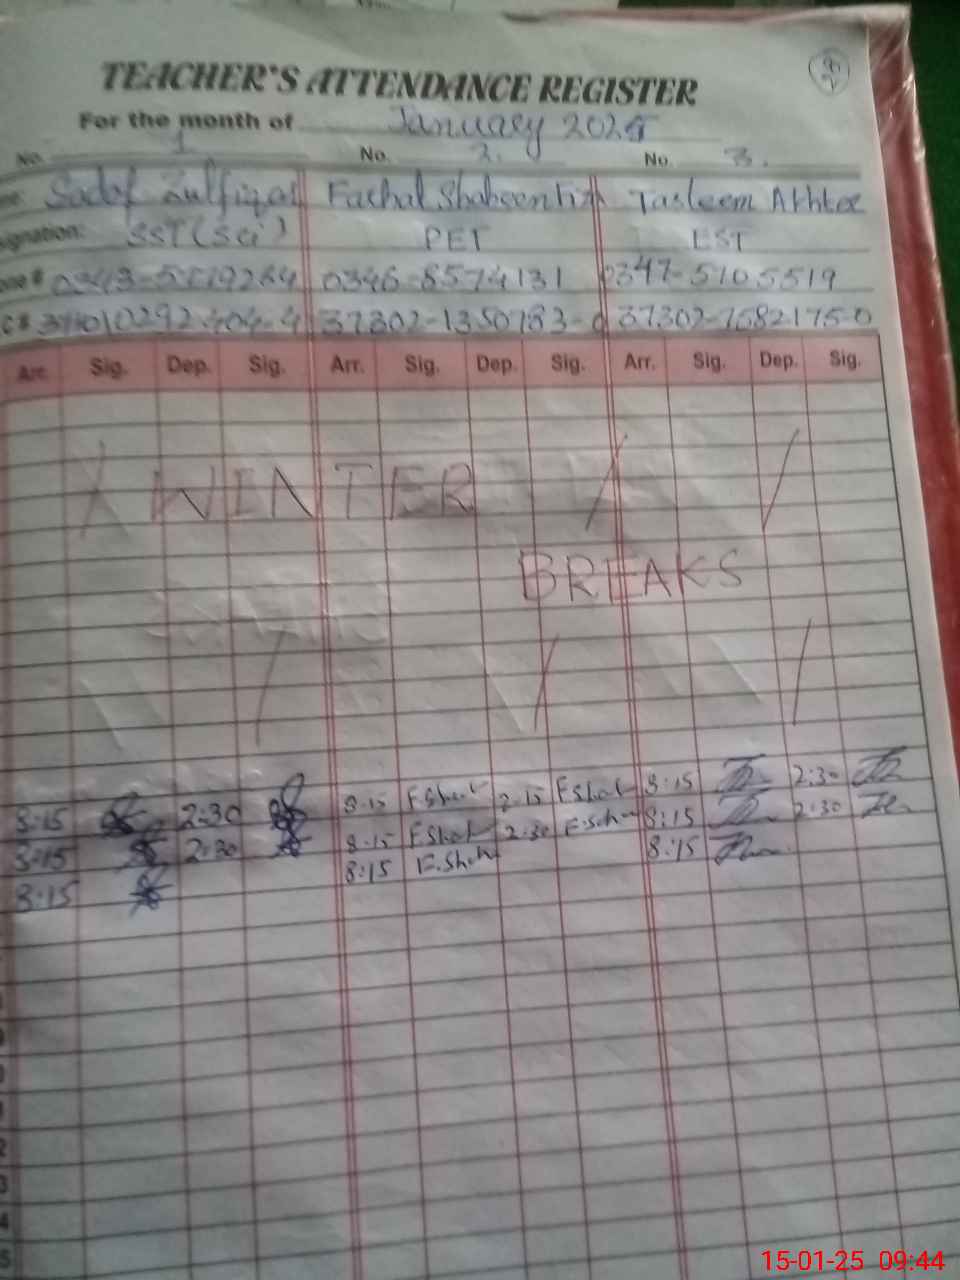 TEACHER'S ATTENDANCE REGISTER
For the month of January 2025
No. 1 No. 2. No. 3.
Sadaf Zulfiqar Shaheen Tasleem Akhter
signation: SST (Sci) PET EST
one # 0346-8574131 0347-5105519
C # 37302-1350783-0 37302-7682175-0
Arr. Sig. Dep. Sig. Arr. Sig. Dep. Sig. Arr. Sig. Dep. Sig.
WINTER
BREAKS
8:15 2:30 8:15 F.Shah 2:15 F.Shah 8:15 2:30
8:15 2:30 8:15 F.Shah 2:30 F.Shah 8:15 2:30
8:15 8:15 F.Shah 8:15
2
3
4
5
15-01-25 09:44